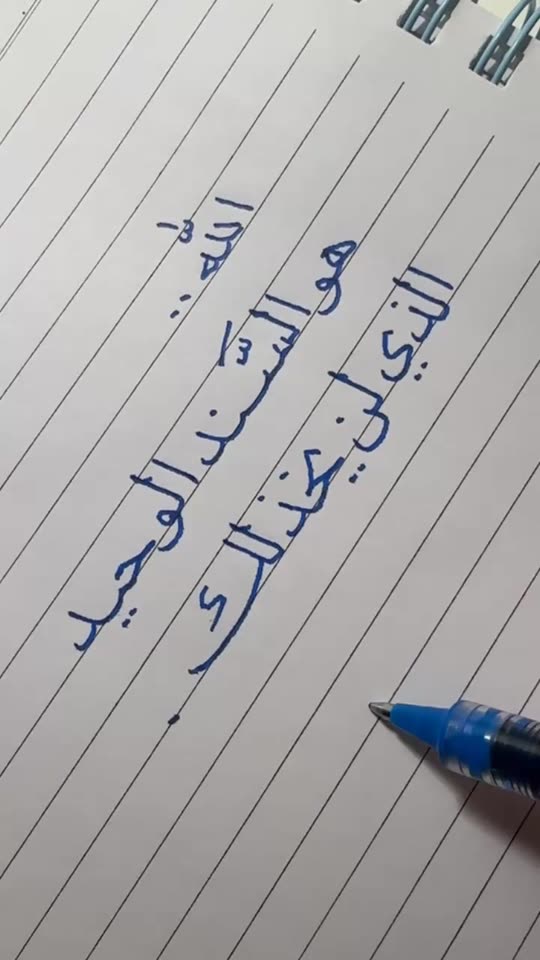 اللّٰه :
هو السّند الوحيد
الذي لن يخذلك .